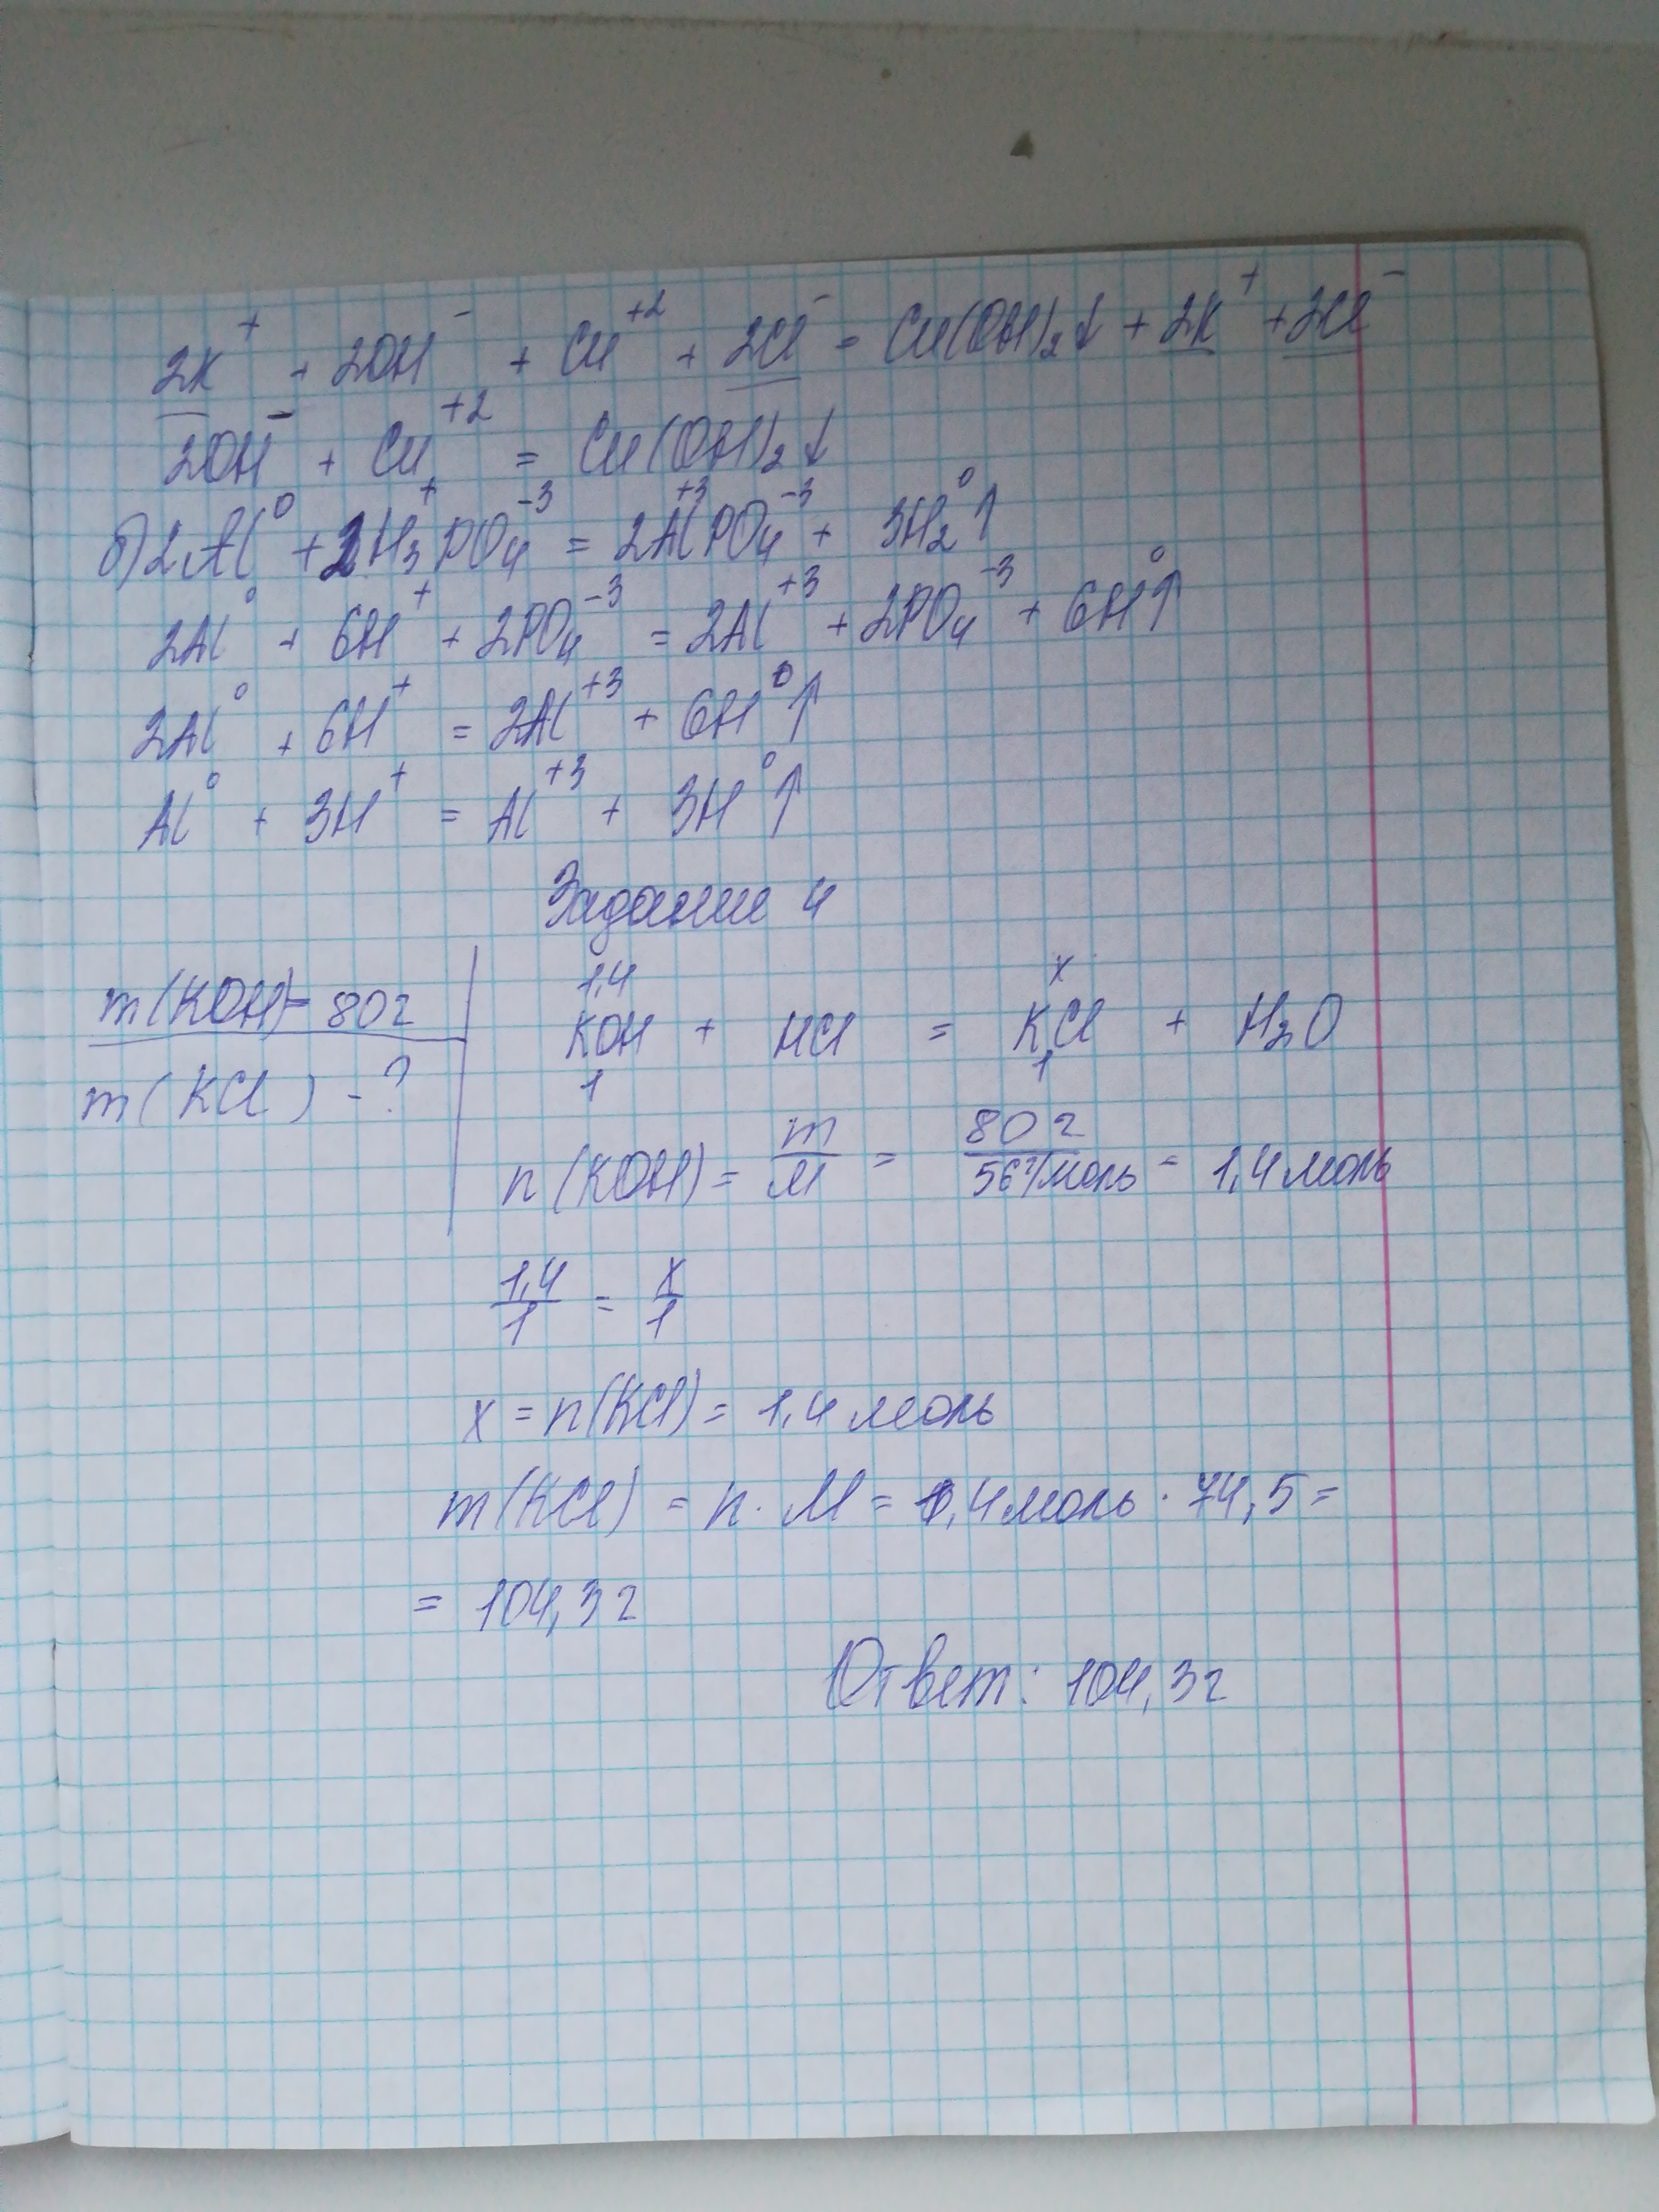 2K⁺ + 2OH⁻ + Cu⁺² + 2Cl⁻ = Cu(OH)₂↓ + 2K⁺ + 2Cl⁻
2OH⁻ + Cu⁺² = Cu(OH)₂↓
б) 2Al⁰ + 2H₃⁺PO₄⁻³ = 2Al⁺³PO₄⁻³ + 3H₂⁰↑
2Al⁰ + 6H⁺ + 2PO₄⁻³ = 2Al⁺³ + 2PO₄⁻³ + 6H⁰↑
2Al⁰ + 6H⁺ = 2Al⁺³ + 6H⁰↑
Al⁰ + 3H⁺ = Al⁺³ + 3H⁰↑
Задание 4
m(KOH) = 80г
m(KCl) - ?
1,4 x
KOH + HCl = KCl + H₂O
1 1
n(KOH) = m/M = 80г/56г/моль = 1,4 моль
1,4/1 = x/1
x = n(KCl) = 1,4 моль
m(KCl) = n · M = 1,4 моль · 74,5 =
= 104,3г
Ответ: 104,3г